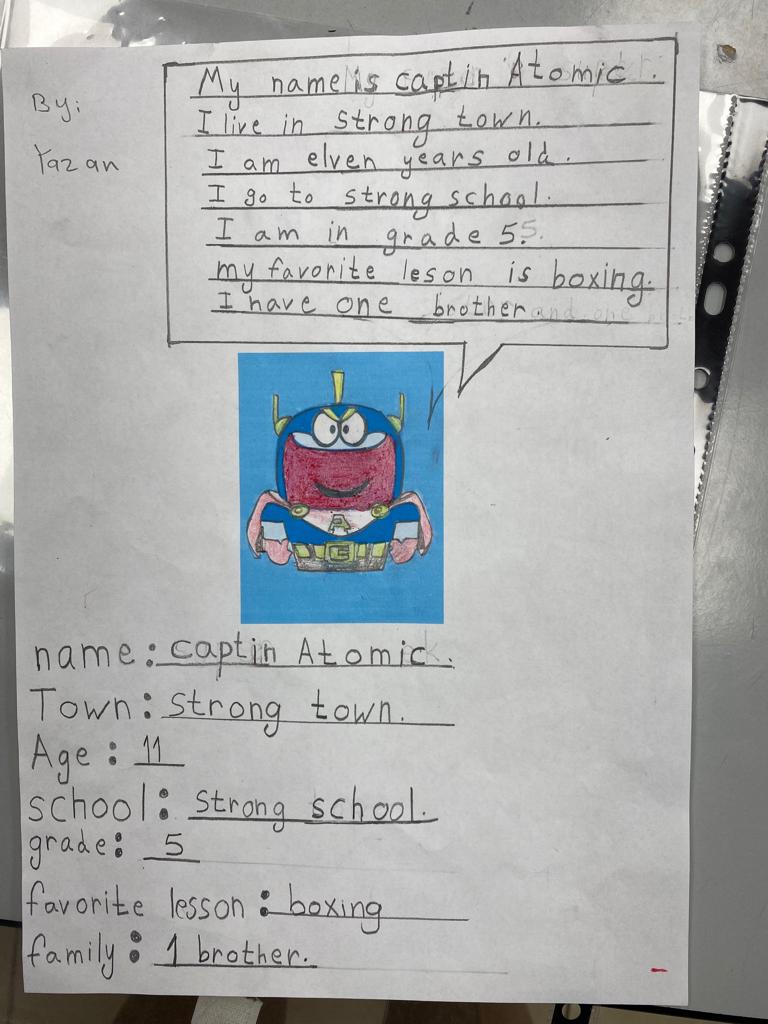 By:
Yazan
My name is captin Atomic.
I live in strong town.
I am elven years old.
I go to strong school.
I am in grade 5.
my favorite leson is boxing.
I have one brother
A
name: captin Atomic.
Town: strong town.
Age: 11
school: strong school.
grade: 5
favorite lesson: boxing
family: 1 brother.